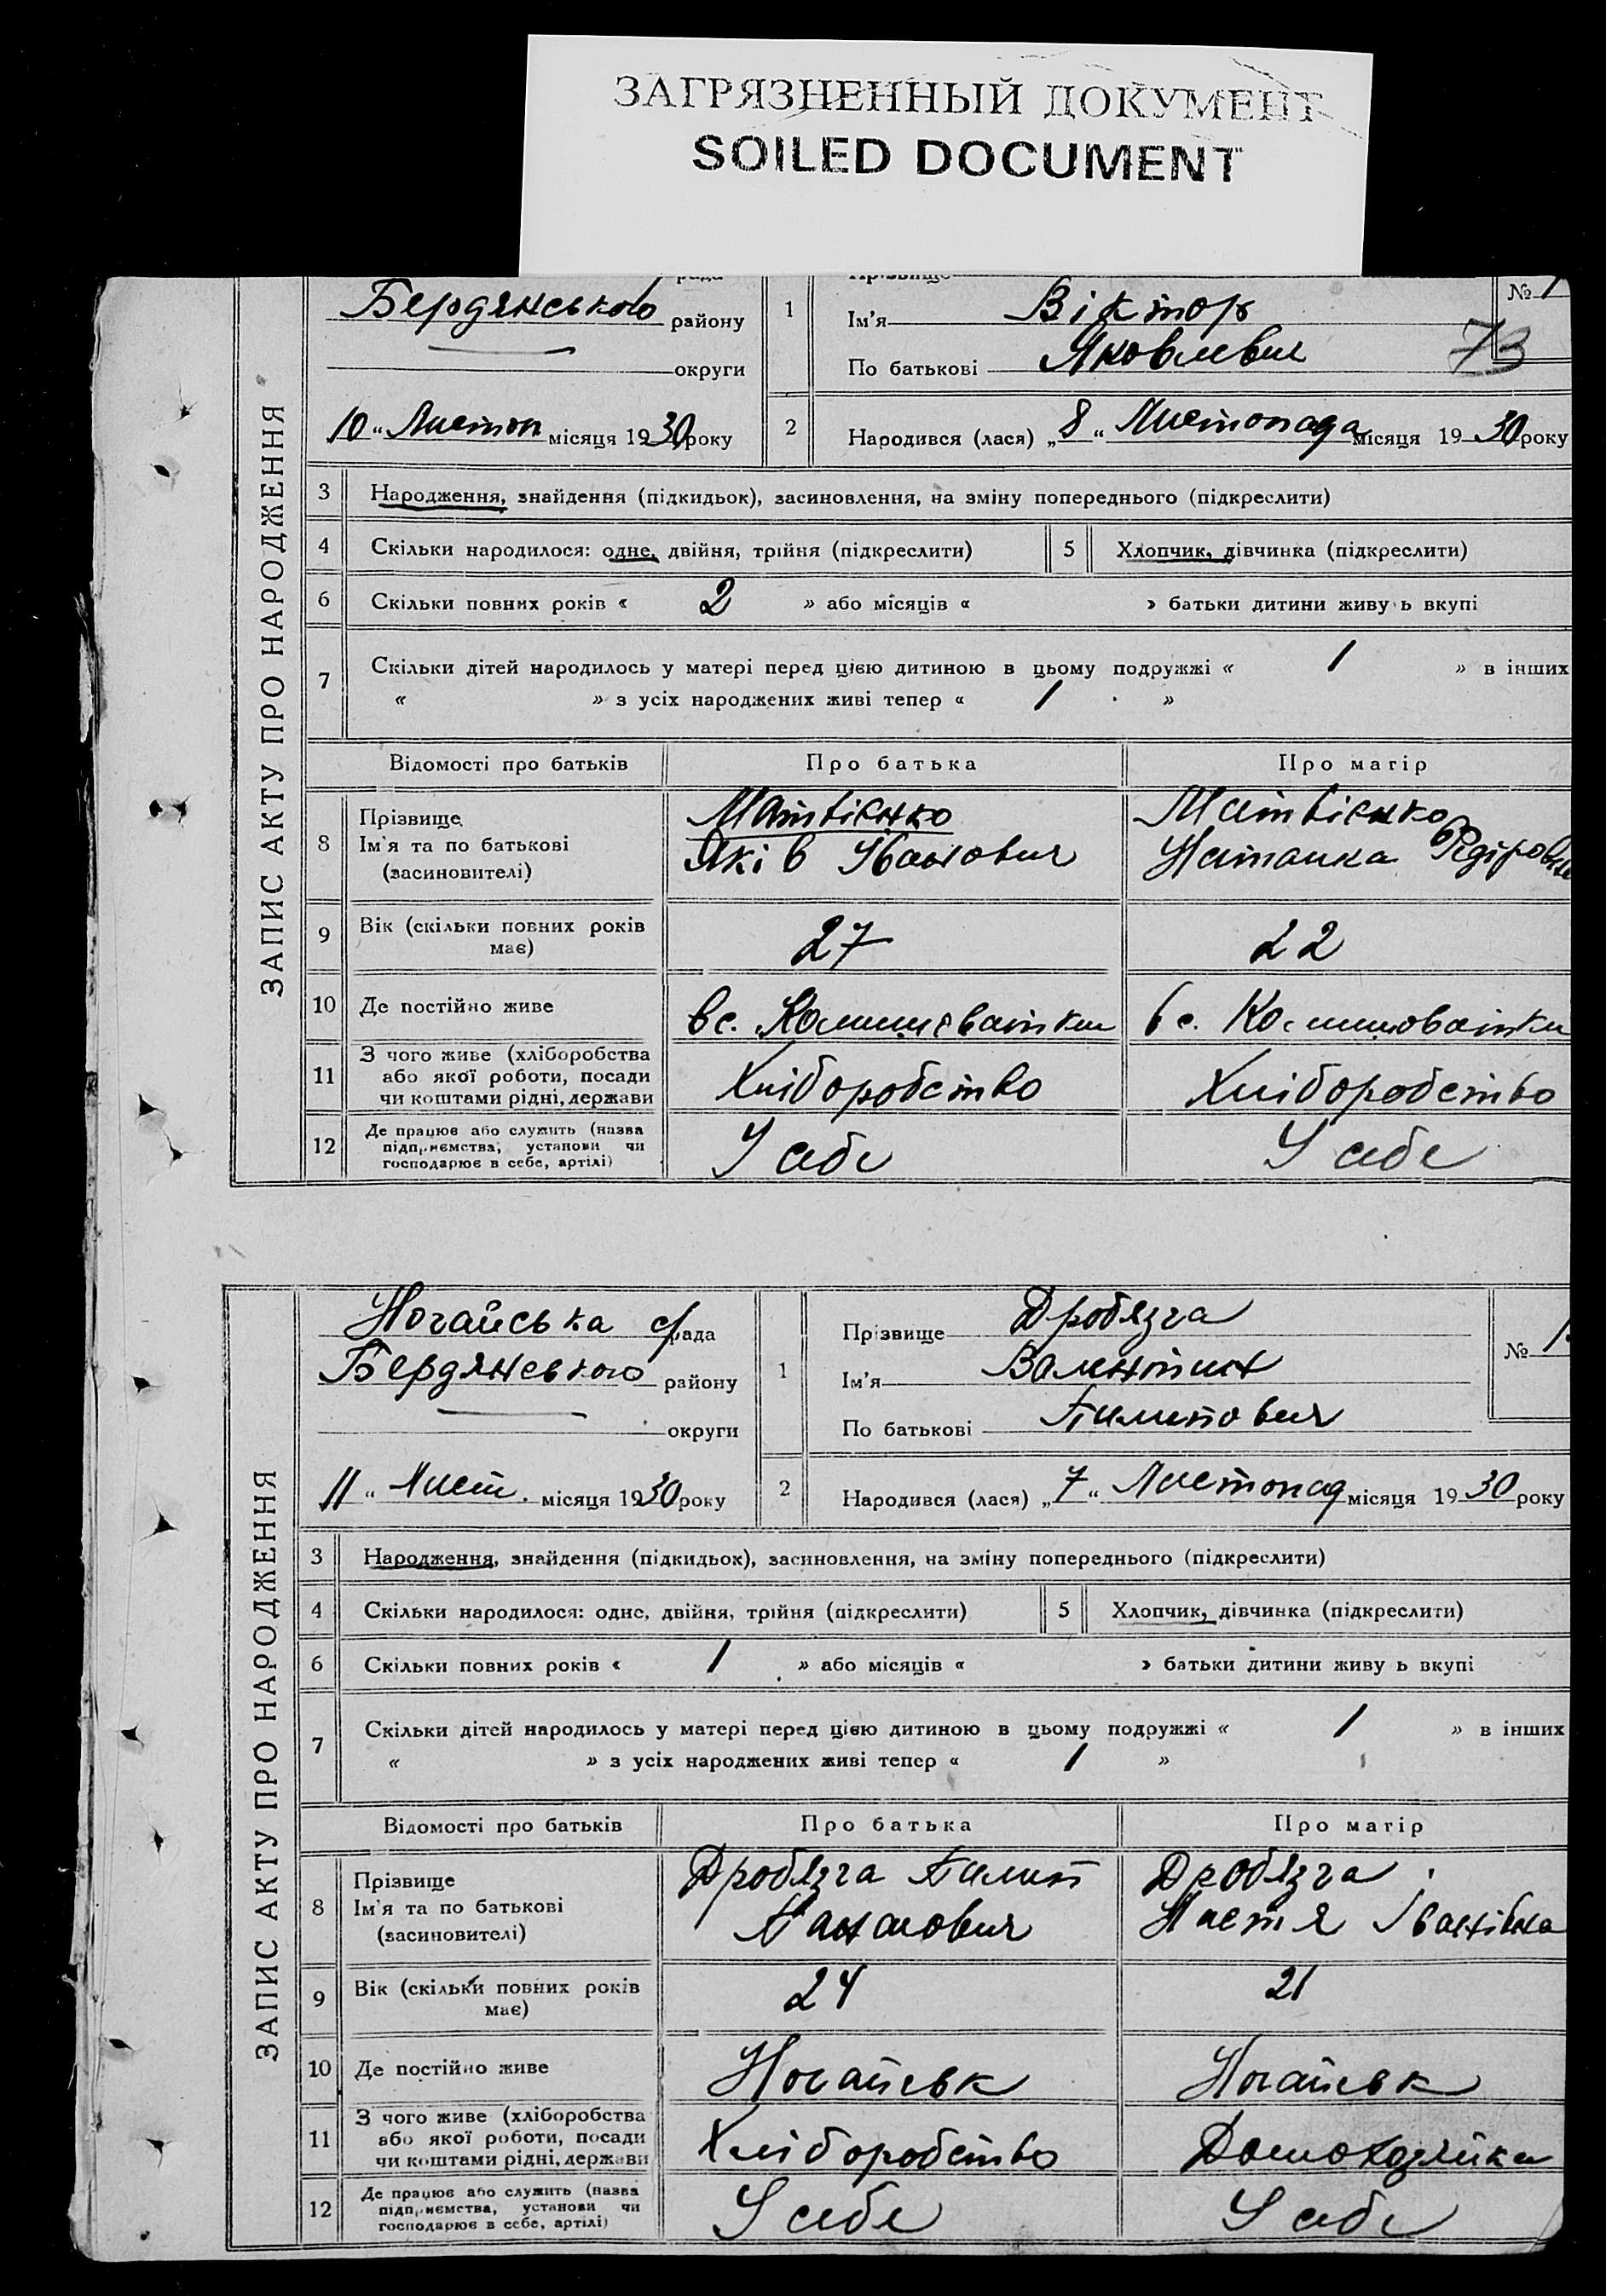 ЗАГРЯЗНЕННЫЙ ДОКУМЕНТ
SOILED DOCUMENT
ЗАПИС АКТУ ПРО НАРОДЖЕННЯ
Бердянського району
округи
10 " Листоп місяця 1930 року
1
Ім'я Віктор
По батькові Яковлевич
№ 1
73
2 Народився (лася) „ 8 " Листопада місяця 1930 року
3 Народження, знайдення (підкидьок), засиновлення, на зміну попереднього (підкреслити)
4 Скільки народилося: одне, двійня, трійня (підкреслити) 5 Хлопчик, дівчинка (підкреслити)
6 Скільки повних років « 2 » або місяців « » батьки дитини живу ь вкупі
7 Скільки дітей народилось у матері перед цією дитиною в цьому подружжі « 1 » в інших
« » з усіх народжених живі тепер « 1 »
Відомості про батьків Про батька Про матір
8 Прізвище Ім'я та по батькові (засиновителі)
Матвієнко
Які в Іванович
Матвієнко
Наталка
9 Вік (скільки повних років має) 27 22
10 Де постійно живе вс. вс.
11 З чого живе (хліборобства або якої роботи, посади чи коштами рідні, держави Хліборобство Хліборобство
12 Де працює або служить (назва підприємства, установи чи господарює в себе, артілі) У себе У себе
ЗАПИС АКТУ ПРО НАРОДЖЕННЯ
Ногайська с/рада
Бердянського району
округи
11 " Лист. місяця 1930 року
1 Прізвище Дробязга
Ім'я Валентин
По батькові Пилипович
№ 1
2 Народився (лася) „ 7 " Листопад місяця 1930 року
3 Народження, знайдення (підкидьок), засиновлення, на зміну попереднього (підкреслити)
4 Скільки народилося: одне, двійня, трійня (підкреслити) 5 Хлопчик, дівчинка (підкреслити)
6 Скільки повних років « 1 » або місяців « » батьки дитини живу ь вкупі
7 Скільки дітей народилось у матері перед цією дитиною в цьому подружжі « 1 » в інших
« » з усіх народжених живі тепер « 1 »
Відомості про батьків Про батька Про матір
8 Прізвище Ім'я та по батькові (засиновителі)
Дробязга Пилип
Панасович
Дробязга
Настя Іванівна
9 Вік (скільки повних років має) 24 21
10 Де постійно живе Ногайськ Ногайськ
11 З чого живе (хліборобства або якої роботи, посади чи коштами рідні, держави Хліборобство Домохозяйка
12 Де працює або служить (назва підприємства, установи чи господарює в себе, артілі) У себе У себе